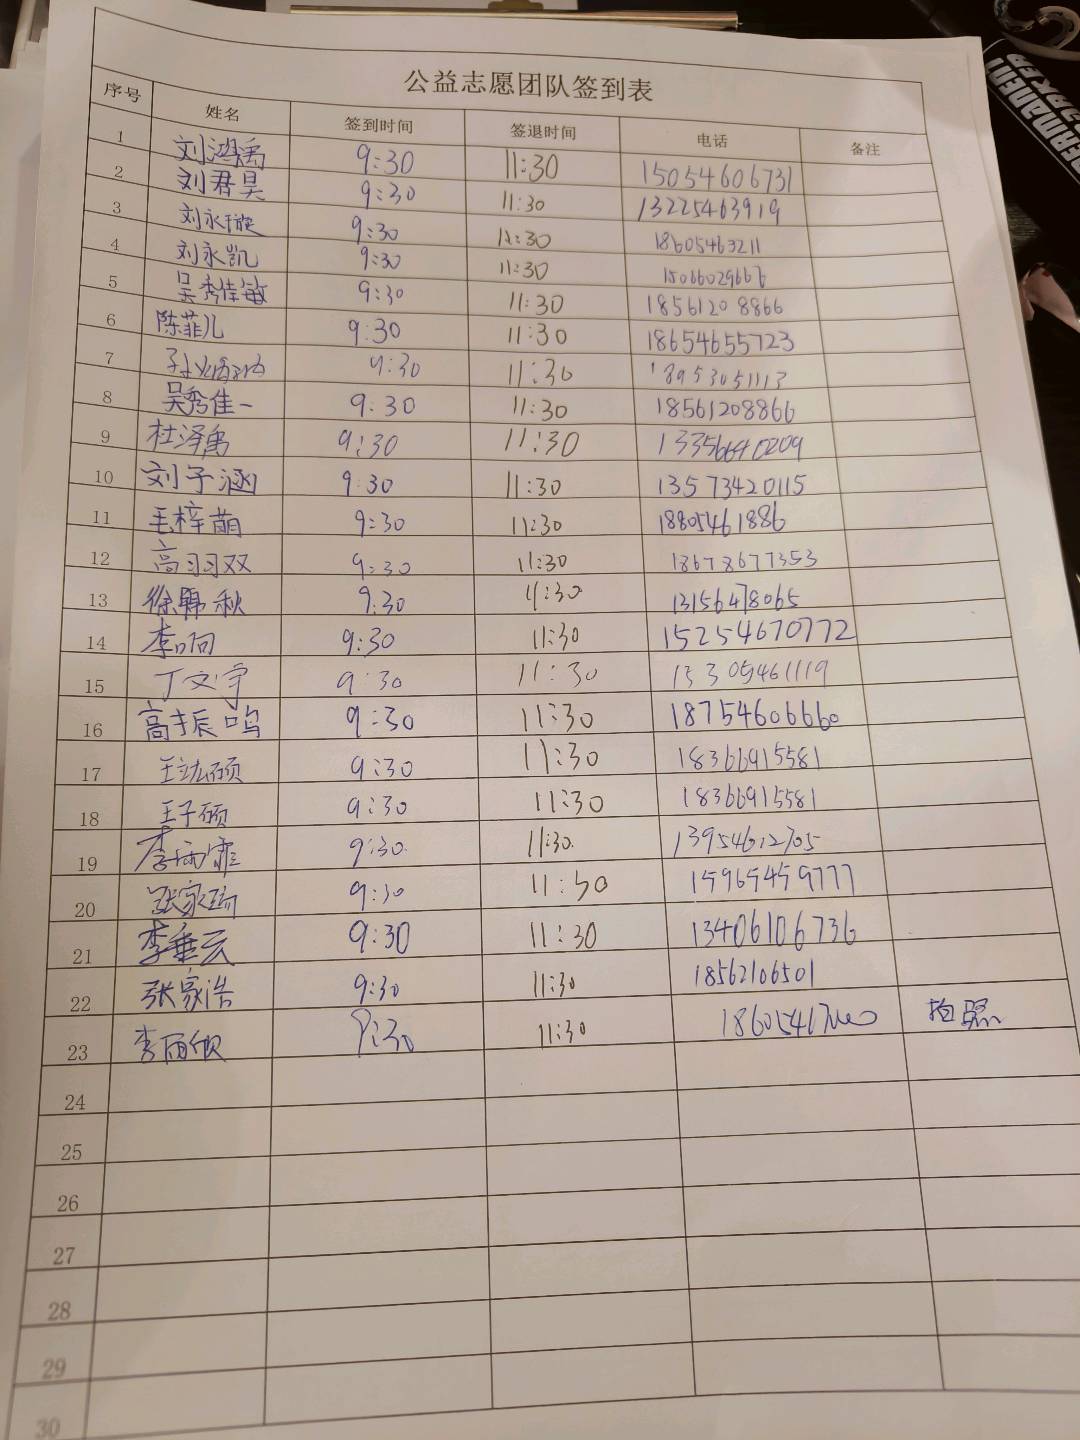 公益志愿团队签到表
序号 姓名 签到时间 签退时间 电话 备注
1 刘鸿禹 9:30 11:30 15054606731
2 刘君昊 9:30 11:30 13225463919
3 刘永璇 9:30 11:30 18605463211
4 刘永凯 9:30 11:30 15066029667
5 吴秀佳敏 9:30 11:30 18561208866
6 陈菲儿 9:30 11:30 18654655723
7 9:30 11:30 18953051113
8 吴秀佳一 9:30 11:30 18561208866
9 杜泽禹 9:30 11:30 13356640209
10 刘子涵 9:30 11:30 13573420115
11 毛梓萌 9:30 11:30 18805461886
12 高羽双 9:30 11:30 18678677353
13 徐锦秋 9:30 11:30 13156478065
14 李响 9:30 11:30 15254670772
15 丁文宇 9:30 11:30 15305461119
16 高振鸣 9:30 11:30 18754606660
17 王竑硕 9:30 11:30 18366915581
18 王子硕 9:30 11:30 18366915581
19 李雨霏 9:30 11:30 13954612705
20 张家瑞 9:30 11:30 15965459777
21 李垂云 9:30 11:30 13406106736
22 张家浩 9:30 11:30 18562106501
23 李雨欣 9:30 11:30 拍照
24
25
26
27
28
29
30